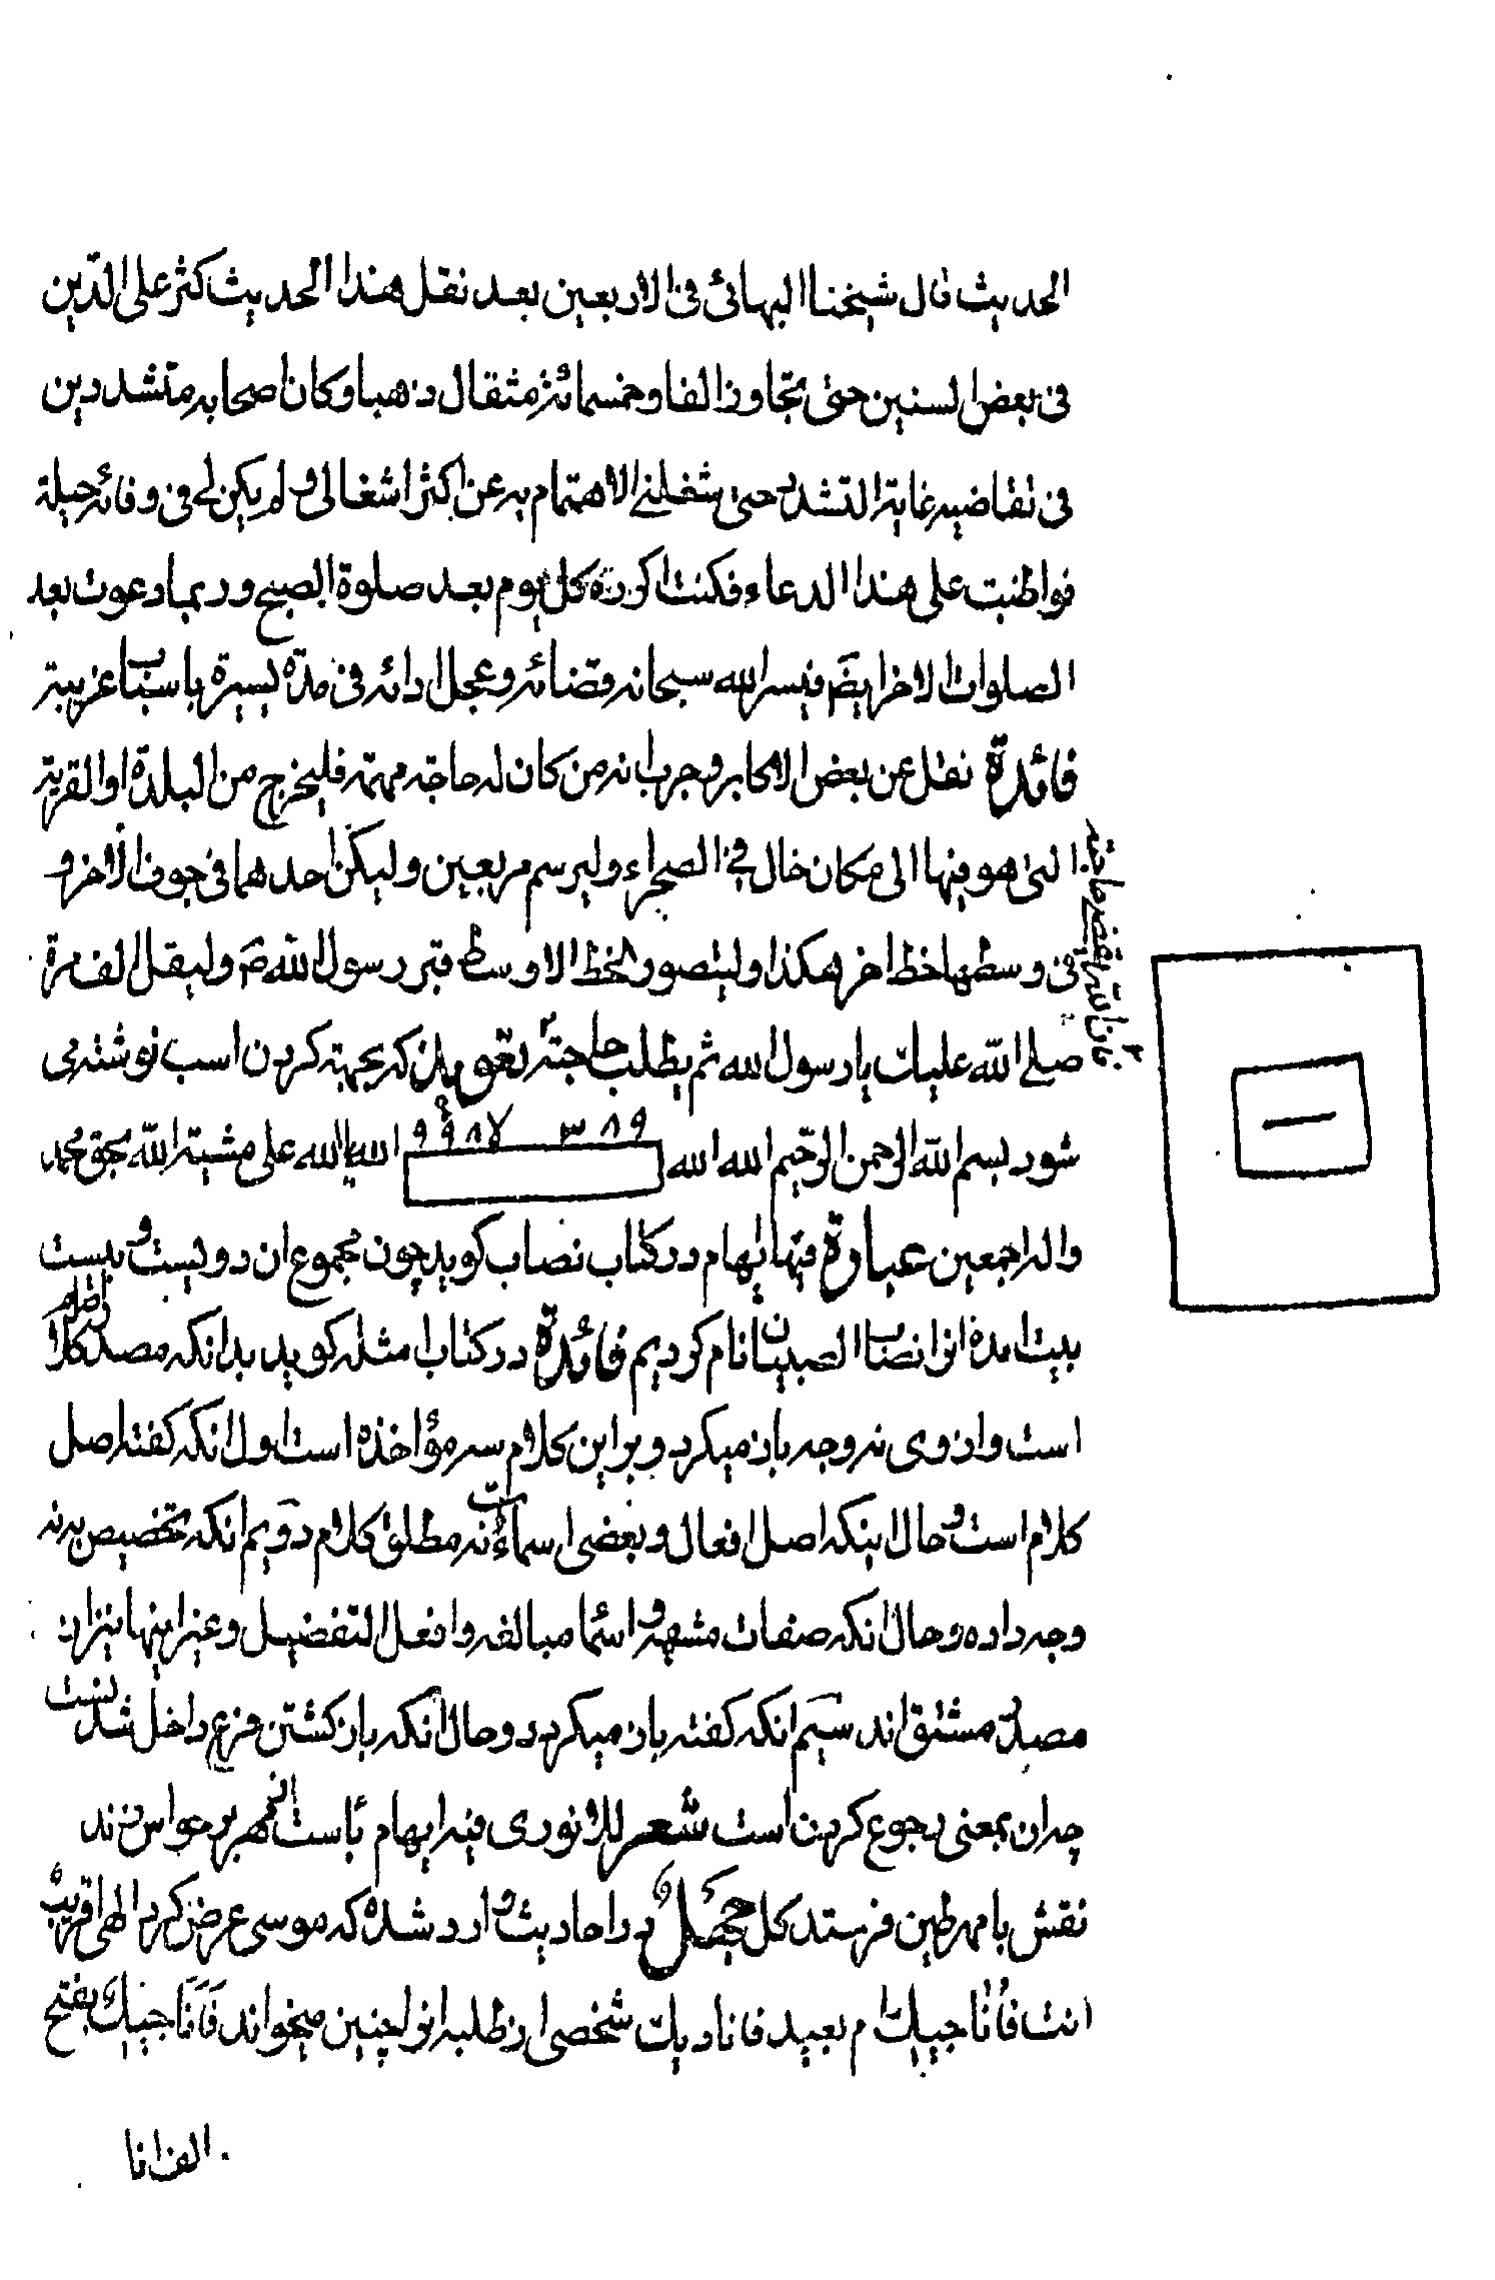 الحديث قال شيخنا البهائى فى الاربعين بعد نقل هذا الحديث كثر على الدّين
فى بعض السنين حتى تجاوز الفا وخمسمائة مثقال ذهبا وكان اصحابه متشددين
فى تقاضيه غاية التشدد حتى شغلنى الاهتمام به عن اكثر اشغالى ولم يكن لى فى وفائه حيلة
فواظبت على هذا الدعاء فكنت اكرره كل يوم بعد صلوة الصبح وربما دعوت بعد
الصلوات الاخر ايضً فيسر الله سبحانه قضائه وعجل ادائه فى مدة يسيرة باسباب غريبة
فائدة نقل عن بعض الاكابر وجرب انه من كان له حاجة مهمة فليخرج من البلدة او القرية
التى هو فيها الى مكان خال فى الصحراء وليرسم مربعين وليكن احدهما فى جوف الاخر و
فى وسطها خط اخر هكذا وليتصور الخط الاوسط قبر رسول اللّه صَ وليقل الف مرة
صلى اللّه عليك يا رسول الله ثم يطلب حاجته كه بجهته كردن اسب نوشته مى
فان اللّه يقضى حاجته
شود بسم اللّه الرحمن الرّحيم الله الله ٣٨٩ ٩٩٨٧ الله يا الله على مشية اللّه بحق محمد
واله اجمعين عبارة فيها ايهام در كتاب نصاب كويد چون مجموع ان دويست و بيست
بيت امده انرا نصاب الصبيان نام كرديم فائدة در كتاب امثله كويد بدانكه مصدر اصل كلام
است واز وى نه وجه باز ميكردد و براين كلام سه مؤاخذه است اول انكه كفته اصل
كلام است و حال اينكه اصل افعال و بعضى اسماء است نه مطلق كلام دوّيم انكه تخصيص به نه
وجه داده و حال انكه صفات مشبهه و اسماء مبالغه وافعل التفضيل وغير اينها نيز از
مصدر مشتق اند سيّم انكه كفته باز ميكردد و حال انكه باز كشتن فرع داخل شدنست
چه ان بمعنى رجوع كردن است شعر للانورى فيه ايهام
نقش با مهر طين فرستد كل در احاديث وارد شده كه موسى عرض كرد الهى اقريب
انت فاُناجيك ام بعيد فاناديك شخصى از طلبه انرا چنين ميخواند فَاَنَاجيك بفتح
الف انا